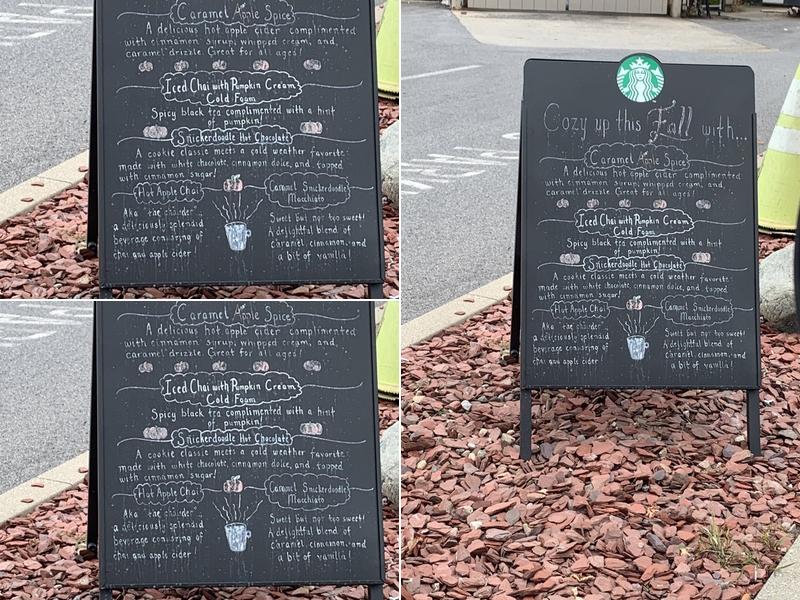 Caramel Apple Spice
A delicious hot apple cider complimented
with cinnamon syrup, whipped cream, and
caramel drizzle. Great for all ages!
Iced Chai with Pumpkin Cream
Cold Foam
Spicy black tea complimented with a hint
of pumpkin!
Snickerdoodle Hot Chocolate
A cookie classic meets a cold weather favorite:
made with white chocolate, cinnamon dolce, and topped
with cinnamon sugar!
Hot Apple Chai
Aka "the chaider"
a deliciously splendid
beverage consisting of
chai and apple cider!
Caramel Snickerdoodle
Macchiato
Sweet but not too sweet!
A delightful blend of
caramel, cinnamon, and
a bit of vanilla!
Cozy up this Fall with...
Caramel Apple Spice
A delicious hot apple cider complimented
with cinnamon syrup, whipped cream, and
caramel drizzle. Great for all ages!
Iced Chai with Pumpkin Cream
Cold Foam
Spicy black tea complimented with a hint
of pumpkin!
Snickerdoodle Hot Chocolate
A cookie classic meets a cold weather favorite:
made with white chocolate, cinnamon dolce, and topped
with cinnamon sugar!
Hot Apple Chai
Aka "the chaider"
a deliciously splendid
beverage consisting of
chai and apple cider!
Caramel Snickerdoodle
Macchiato
Sweet but not too sweet!
A delightful blend of
caramel, cinnamon, and
a bit of vanilla!
Caramel Apple Spice
A delicious hot apple cider complimented
with cinnamon syrup, whipped cream, and
caramel drizzle. Great for all ages!
Iced Chai with Pumpkin Cream
Cold Foam
Spicy black tea complimented with a hint
of pumpkin!
Snickerdoodle Hot Chocolate
A cookie classic meets a cold weather favorite:
made with white chocolate, cinnamon dolce, and topped
with cinnamon sugar!
Hot Apple Chai
Aka "the chaider"
a deliciously splendid
beverage consisting of
chai and apple cider!
Caramel Snickerdoodle
Macchiato
Sweet but not too sweet!
A delightful blend of
caramel, cinnamon, and
a bit of vanilla!